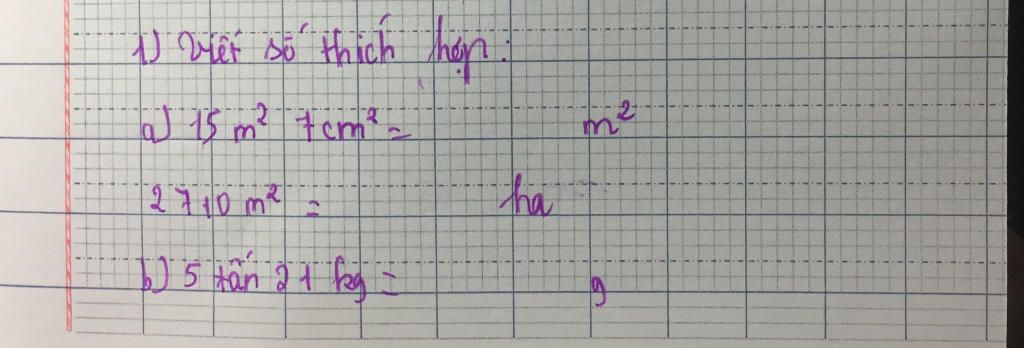 1) Viết số thích hợp:
a) 15 m² 7cm² = m²
2710 m² = ha
b) 5 tấn 21 kg = g